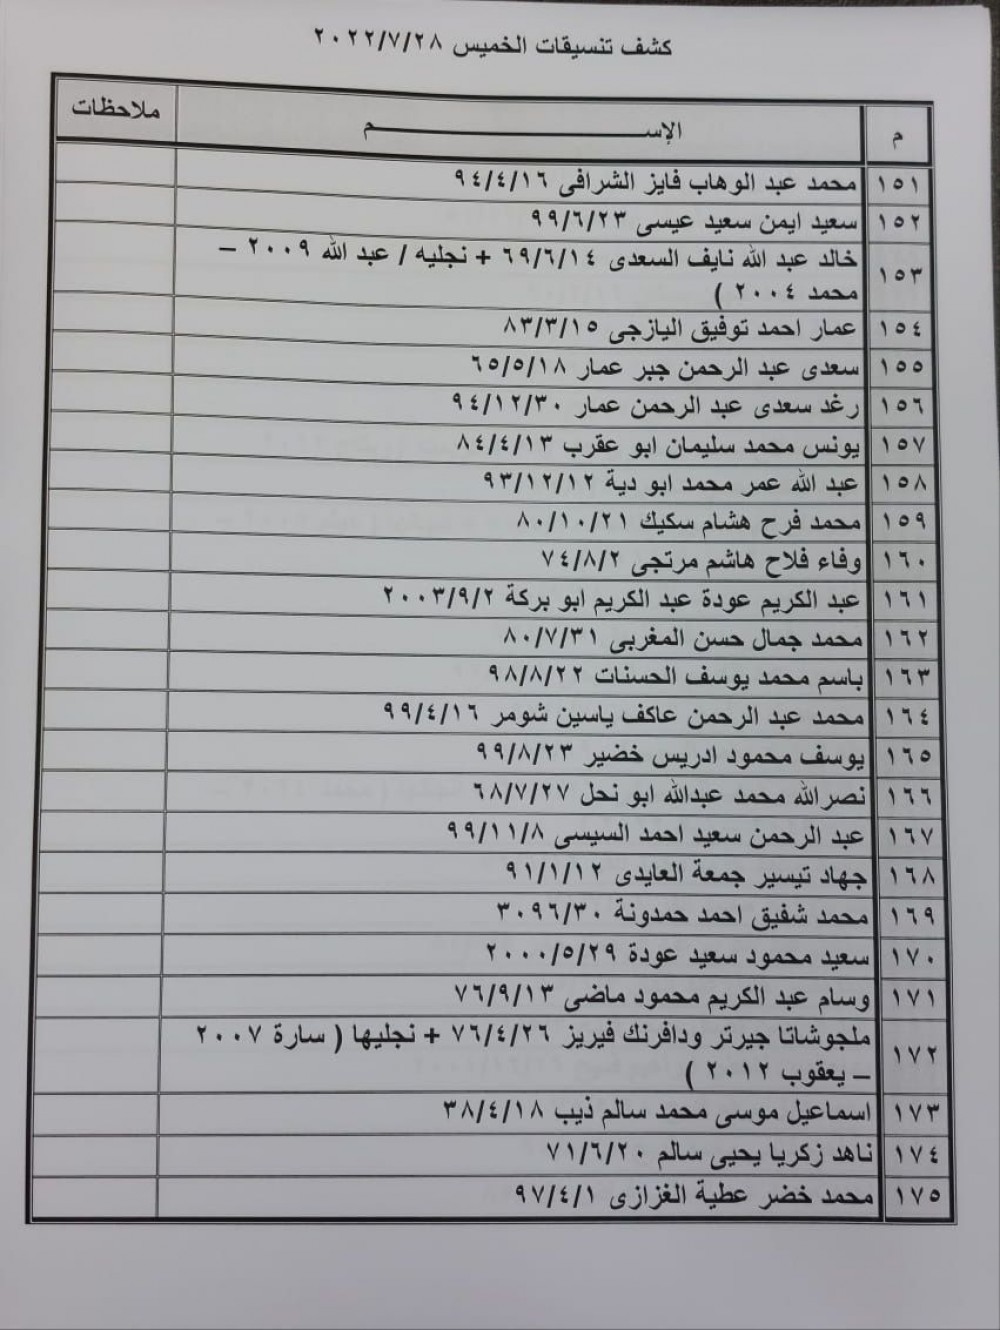 كشف تنسيقات الخميس ٢٠٢٢/٧/٢٨
م الإســـــــم ملاحظات
١٥١ محمد عبد الوهاب فايز الشرافى ٩٤/٤/١٦
١٥٢ سعيد ايمن سعيد عيسى ٩٩/٦/٢٣
١٥٣ خالد عبد الله نايف السعدى ٦٩/٦/١٤ + نجليه / عبد الله ٢٠٠٩ –
محمد ٢٠٠٤ )
١٥٤ عمار احمد توفيق اليازجى ٨٣/٣/١٥
١٥٥ سعدى عبد الرحمن جبر عمار ٦٥/٥/١٨
١٥٦ رغد سعدى عبد الرحمن عمار ٩٤/١٢/٣٠
١٥٧ يونس محمد سليمان ابو عقرب ٨٤/٤/١٣
١٥٨ عبد الله عمر محمد ابو دية ٩٣/١٢/١٢
١٥٩ محمد فرح هشام سكيك ٨٠/١٠/٢١
١٦٠ وفاء فلاح هاشم مرتجى ٧٤/٨/٢
١٦١ عبد الكريم عودة عبد الكريم ابو بركة ٢٠٠٣/٩/٢
١٦٢ محمد جمال حسن المغربى ٨٠/٧/٣١
١٦٣ باسم محمد يوسف الحسنات ٩٨/٨/٢٢
١٦٤ محمد عبد الرحمن عاكف ياسين شومر ٩٩/٤/١٦
١٦٥ يوسف محمود ادريس خضير ٩٩/٨/٢٣
١٦٦ نصرالله محمد عبدالله ابو نحل ٦٨/٧/٢٧
١٦٧ عبد الرحمن سعيد احمد السيسى ٩٩/١١/٨
١٦٨ جهاد تيسير جمعة العايدى ٩١/١/١٢
١٦٩ محمد شفيق احمد حمدونة ٣٠٩٦/٣٠
١٧٠ سعيد محمود سعيد عودة ٢٠٠٠/٥/٢٩
١٧١ وسام عبد الكريم محمود ماضى ٧٦/٩/١٣
١٧٢ ملجوشاتا جيرتر ودافرنك فيريز ٧٦/٤/٢٦ + نجليها ( سارة ٢٠٠٧
– يعقوب ٢٠١٢ )
١٧٣ اسماعيل موسى محمد سالم ذيب ٣٨/٤/١٨
١٧٤ ناهد زكريا يحيى سالم ٧١/٦/٢٠
١٧٥ محمد خضر عطية الغزازى ٩٧/٤/١